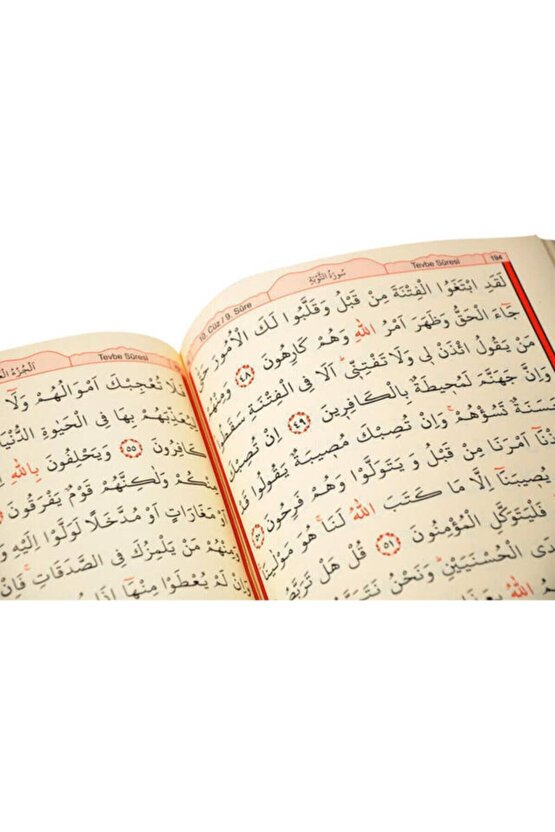 194 Tevbe Sûresi سُورَةُ التَّوْبَةِ 10. Cüz / 9. Sûre
لَقَدِ ابْتَغَوُا الْفِتْنَةَ مِنْ قَبْلُ وَقَلَّبُوا لَكَ الْاُمُورَ حَتّٰى
جَٓاءَ الْحَقُّ وَظَهَرَ اَمْرُ اللّٰهِ وَهُمْ كَارِهُونَ ﴿٤٨﴾ وَمِنْهُمْ
مَنْ يَقُولُ ائْذَنْ ل۪ي وَلَا تَفْتِنّ۪يۜ اَلَا فِي الْفِتْنَةِ سَقَطُواۜ
وَاِنَّ جَهَنَّمَ لَمُح۪يطَةٌ بِالْكَافِر۪ينَ ﴿٤٩﴾ اِنْ تُصِبْكَ
حَسَنَةٌ تَسُؤْهُمْۚ وَاِنْ تُصِبْكَ مُص۪يبَةٌ يَقُولُوا قَدْ
اَمْرَنَا مِنْ قَبْلُ وَيَتَوَلَّوْا وَهُمْ فَرِحُونَ ﴿٥٠﴾
يُص۪يبَنَٓا اِلَّا مَا كَتَبَ اللّٰهُ لَنَاۚ هُوَ مَوْلٰينَاۚ
فَلْيَتَوَكَّلِ الْمُؤْمِنُونَ ﴿٥١﴾ قُلْ هَلْ تَرَبَّصُونَ
الْحُسْنَيَيْنِۜ وَنَحْنُ نَتَرَبَّصُ
اللّٰهُ
Tevbe Sûresi اَلْجُزْءُ
فَلَا تُعْجِبْكَ اَمْوَالُهُمْ وَلَٓا
لِيُعَذِّبَهُمْ بِهَا فِي الْحَيٰوةِ الدُّنْيَا
كَافِرُونَ ﴿٥٥﴾ وَيَحْلِفُونَ بِاللّٰهِ
مِنْكُمْ وَلٰكِنَّهُمْ قَوْمٌ يَفْرَقُونَ
اَوْ مَغَارَاتٍ اَوْ مُدَّخَلًا لَوَلَّوْا اِلَيْهِ
وَمِنْهُمْ مَنْ يَلْمِزُكَ فِي الصَّدَقَاتِۚ فَاِنْ
وَاِنْ لَمْ يُعْطَوْا مِنْهَٓا اِذَا